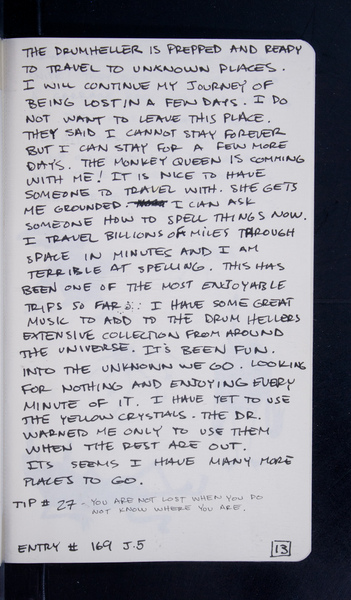 THE DRUMHELLER IS PREPPED AND READY
TO TRAVEL TO UNKNOWN PLACES.
I WILL CONTINUE MY JOURNEY OF
BEING LOST IN A FEW DAYS. I DO
NOT WANT TO LEAVE THIS PLACE.
THEY SAID I CANNOT STAY FOREVER
BUT I CAN STAY FOR A FEW MORE
DAYS. THE MONKEY QUEEN IS COMMING
WITH ME! IT IS NICE TO HAVE
SOMEONE TO TRAVEL WITH. SHE GETS
ME GROUNDED. I CAN ASK
SOMEONE HOW TO SPELL THINGS NOW.
I TRAVEL BILLIONS OF MILES THROUGH
SPACE IN MINUTES AND I AM
TERRIBLE AT SPELLING. THIS HAS
BEEN ONE OF THE MOST ENJOYABLE
TRIPS SO FAR. I HAVE SOME GREAT
MUSIC TO ADD TO THE DRUM HELLERS
EXTENSIVE COLLECTION FROM AROUND
THE UNIVERSE. IT'S BEEN FUN.
INTO THE UNKNOWN WE GO. LOOKING
FOR NOTHING AND ENJOYING EVERY
MINUTE OF IT. I HAVE YET TO USE
THE YELLOW CRYSTALS. THE DR.
WARNED ME ONLY TO USE THEM
WHEN THE REST ARE OUT.
ITS SEEMS I HAVE MANY MORE
PLACES TO GO.
TIP # 27 - YOU ARE NOT LOST WHEN YOU DO
NOT KNOW WHERE YOU ARE.
ENTRY # 169 J.5
13